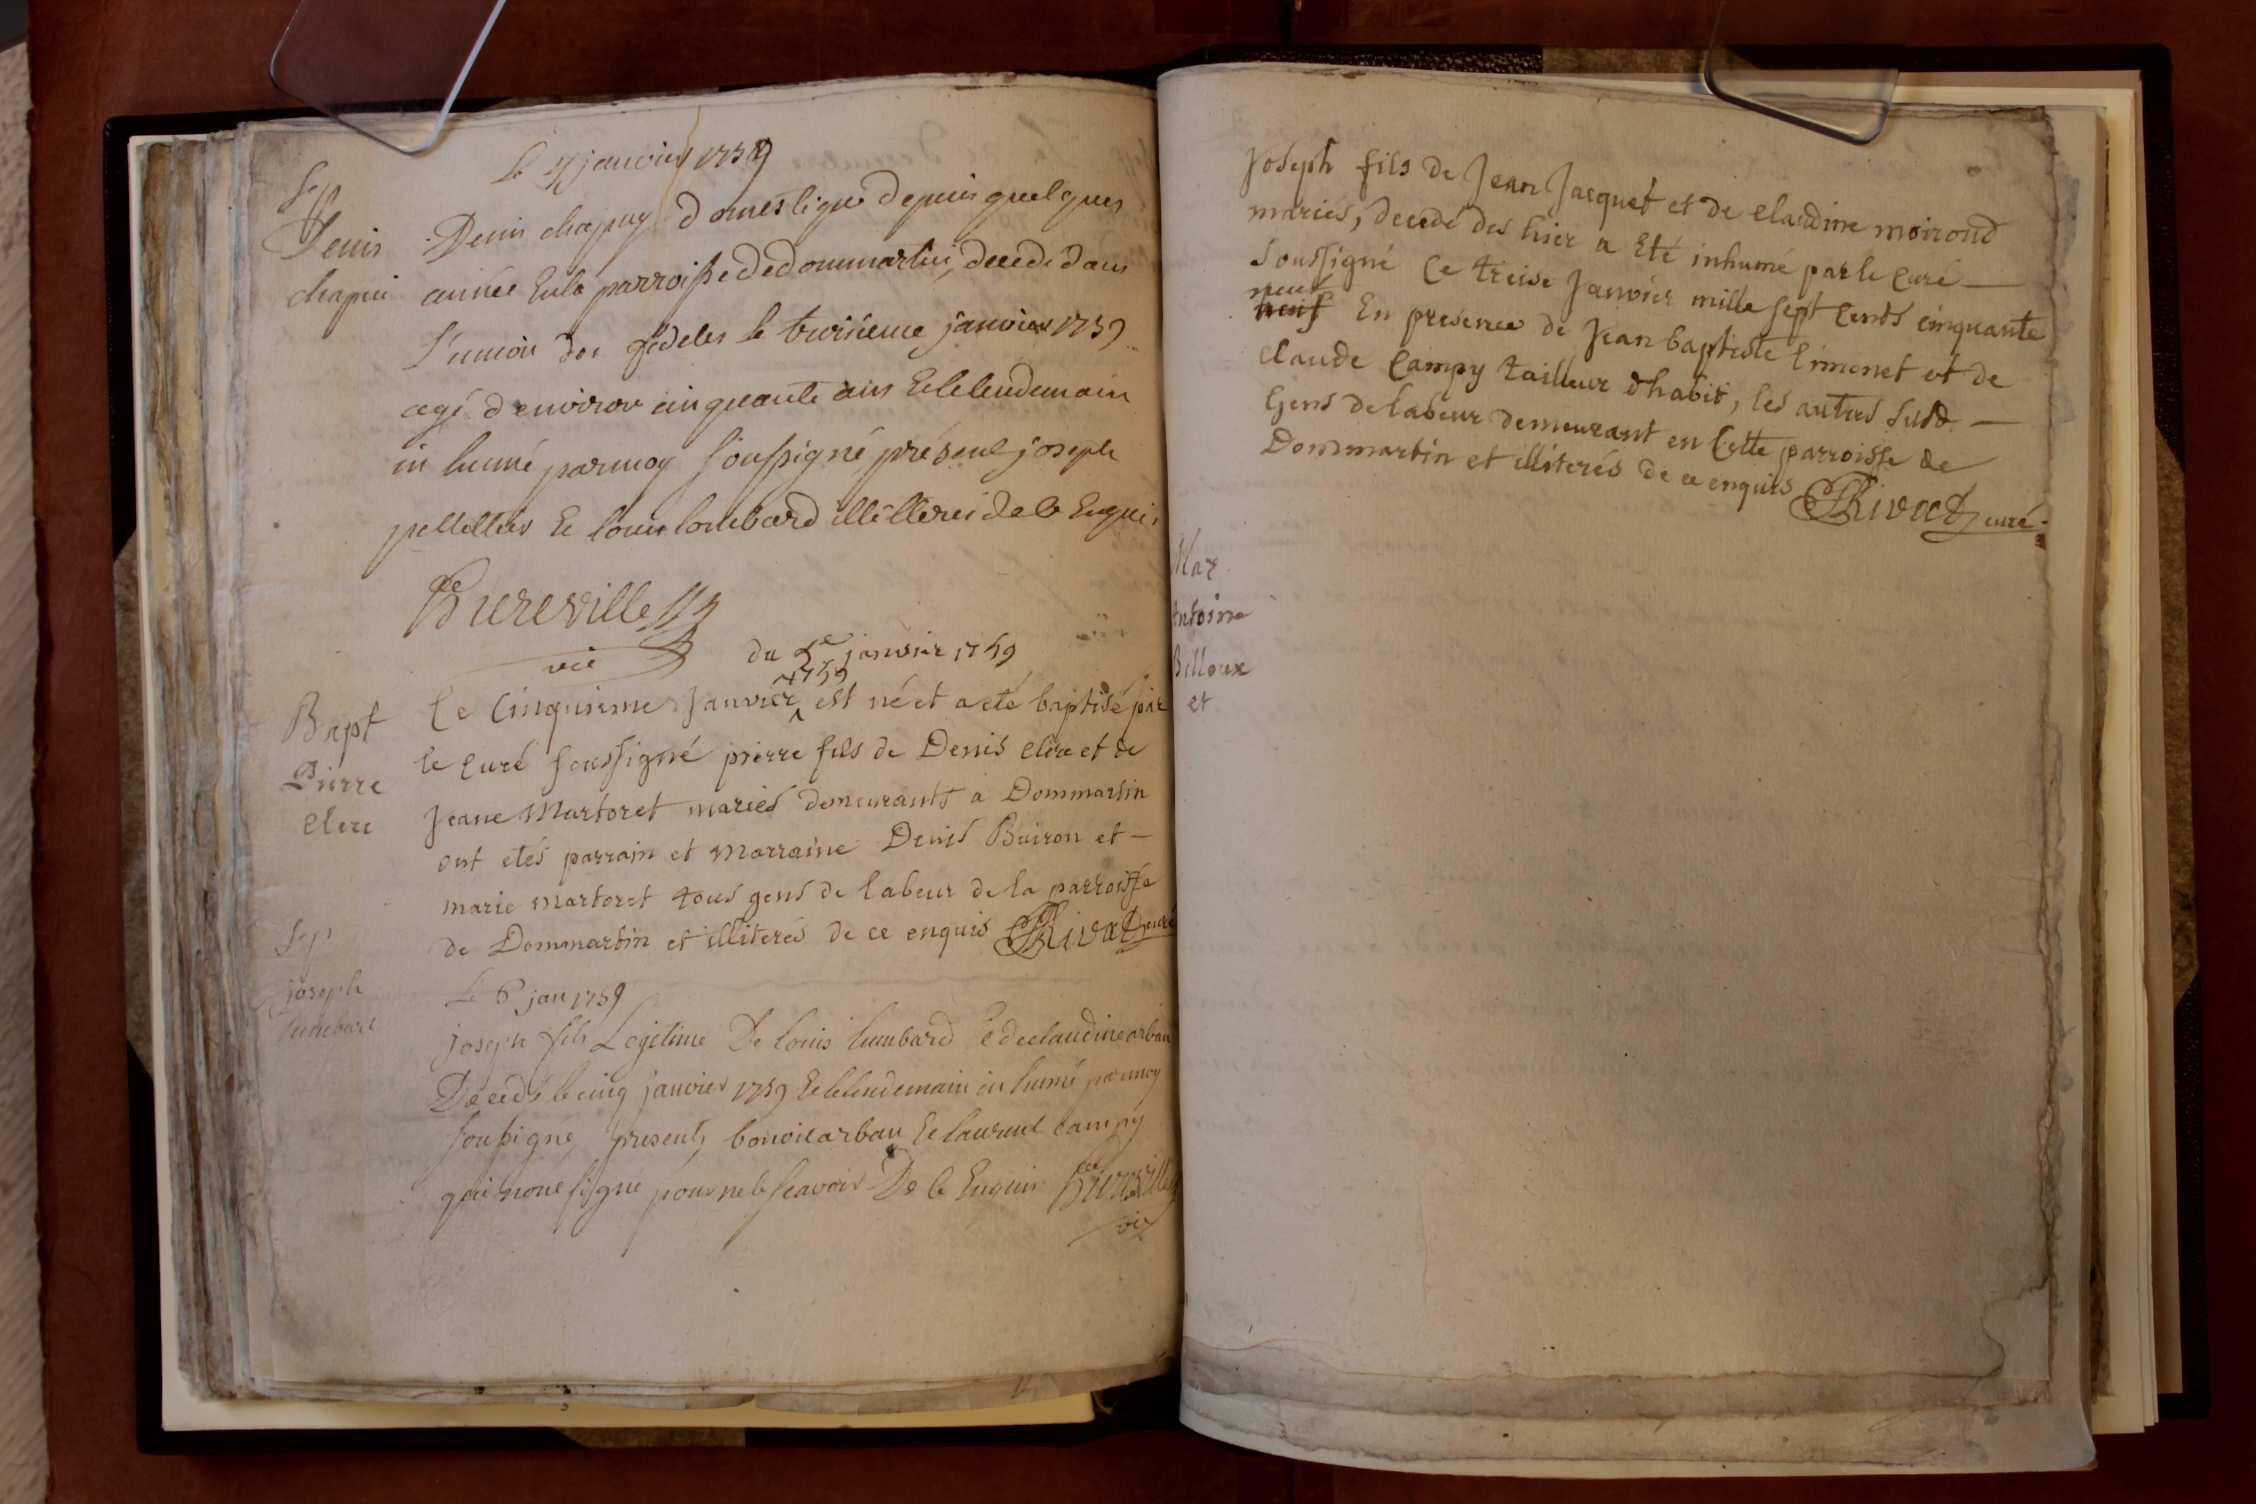 Le 4 janvier 1759
Sep
Denis
chapui
Denis chapuy domestique depuis quelques
année En la parroisse de dommartin, decede dans
l'union des fideles le troisieme janvier 1759
agé d'environ cinquante ans Et le lendemain
in humé par moy soussigné présent joseph
pelletier Et louis lombard illitteréi de le Enquis
Bureville
vic
du 5e janvier 1759
Bapt
Pierre
Clere
1759
Le Cinquieme Janvier est né et a eté baptisé par
le Curé soussigné pierre fils de Denis Clere et de
Jeane Martoret mariés demeurants a Dommartin
ont etés parrain et marraine Denis Buiron et —
marie martoret tous gens de labeur de la parroisse
de Dommartin et illiterés de ce enquis Rivat curé
Sep
joseph
lumbard
Le 6 jan 1759
joseph fils Legitime De louis lumbard Et de claudine arban
Decedé le cinq janvier 1759 Et le lendemain in humé par moy
soussigné, presents, benoit arban Et laurent campy
qui n'ont signé pour ne le scavoir De le Enquis Bureville
vic
Joseph fils de Jean Jacquet et de Claudine moirond
mariés, decedé des hier a Eté inhumé par le Curé —
Soussigné Ce treise Janvier mille sept Cents cinquante
neuf
neuf En presence de Jean baptiste Limonet et de
Claude Campy tailleur d'habit, les autres susd. —
Gens de labeur demeurant en Cette parroisse de
Dommartin et illiterés de ce enquis Rivat curé.
Mar
Antoine
Billoux
et